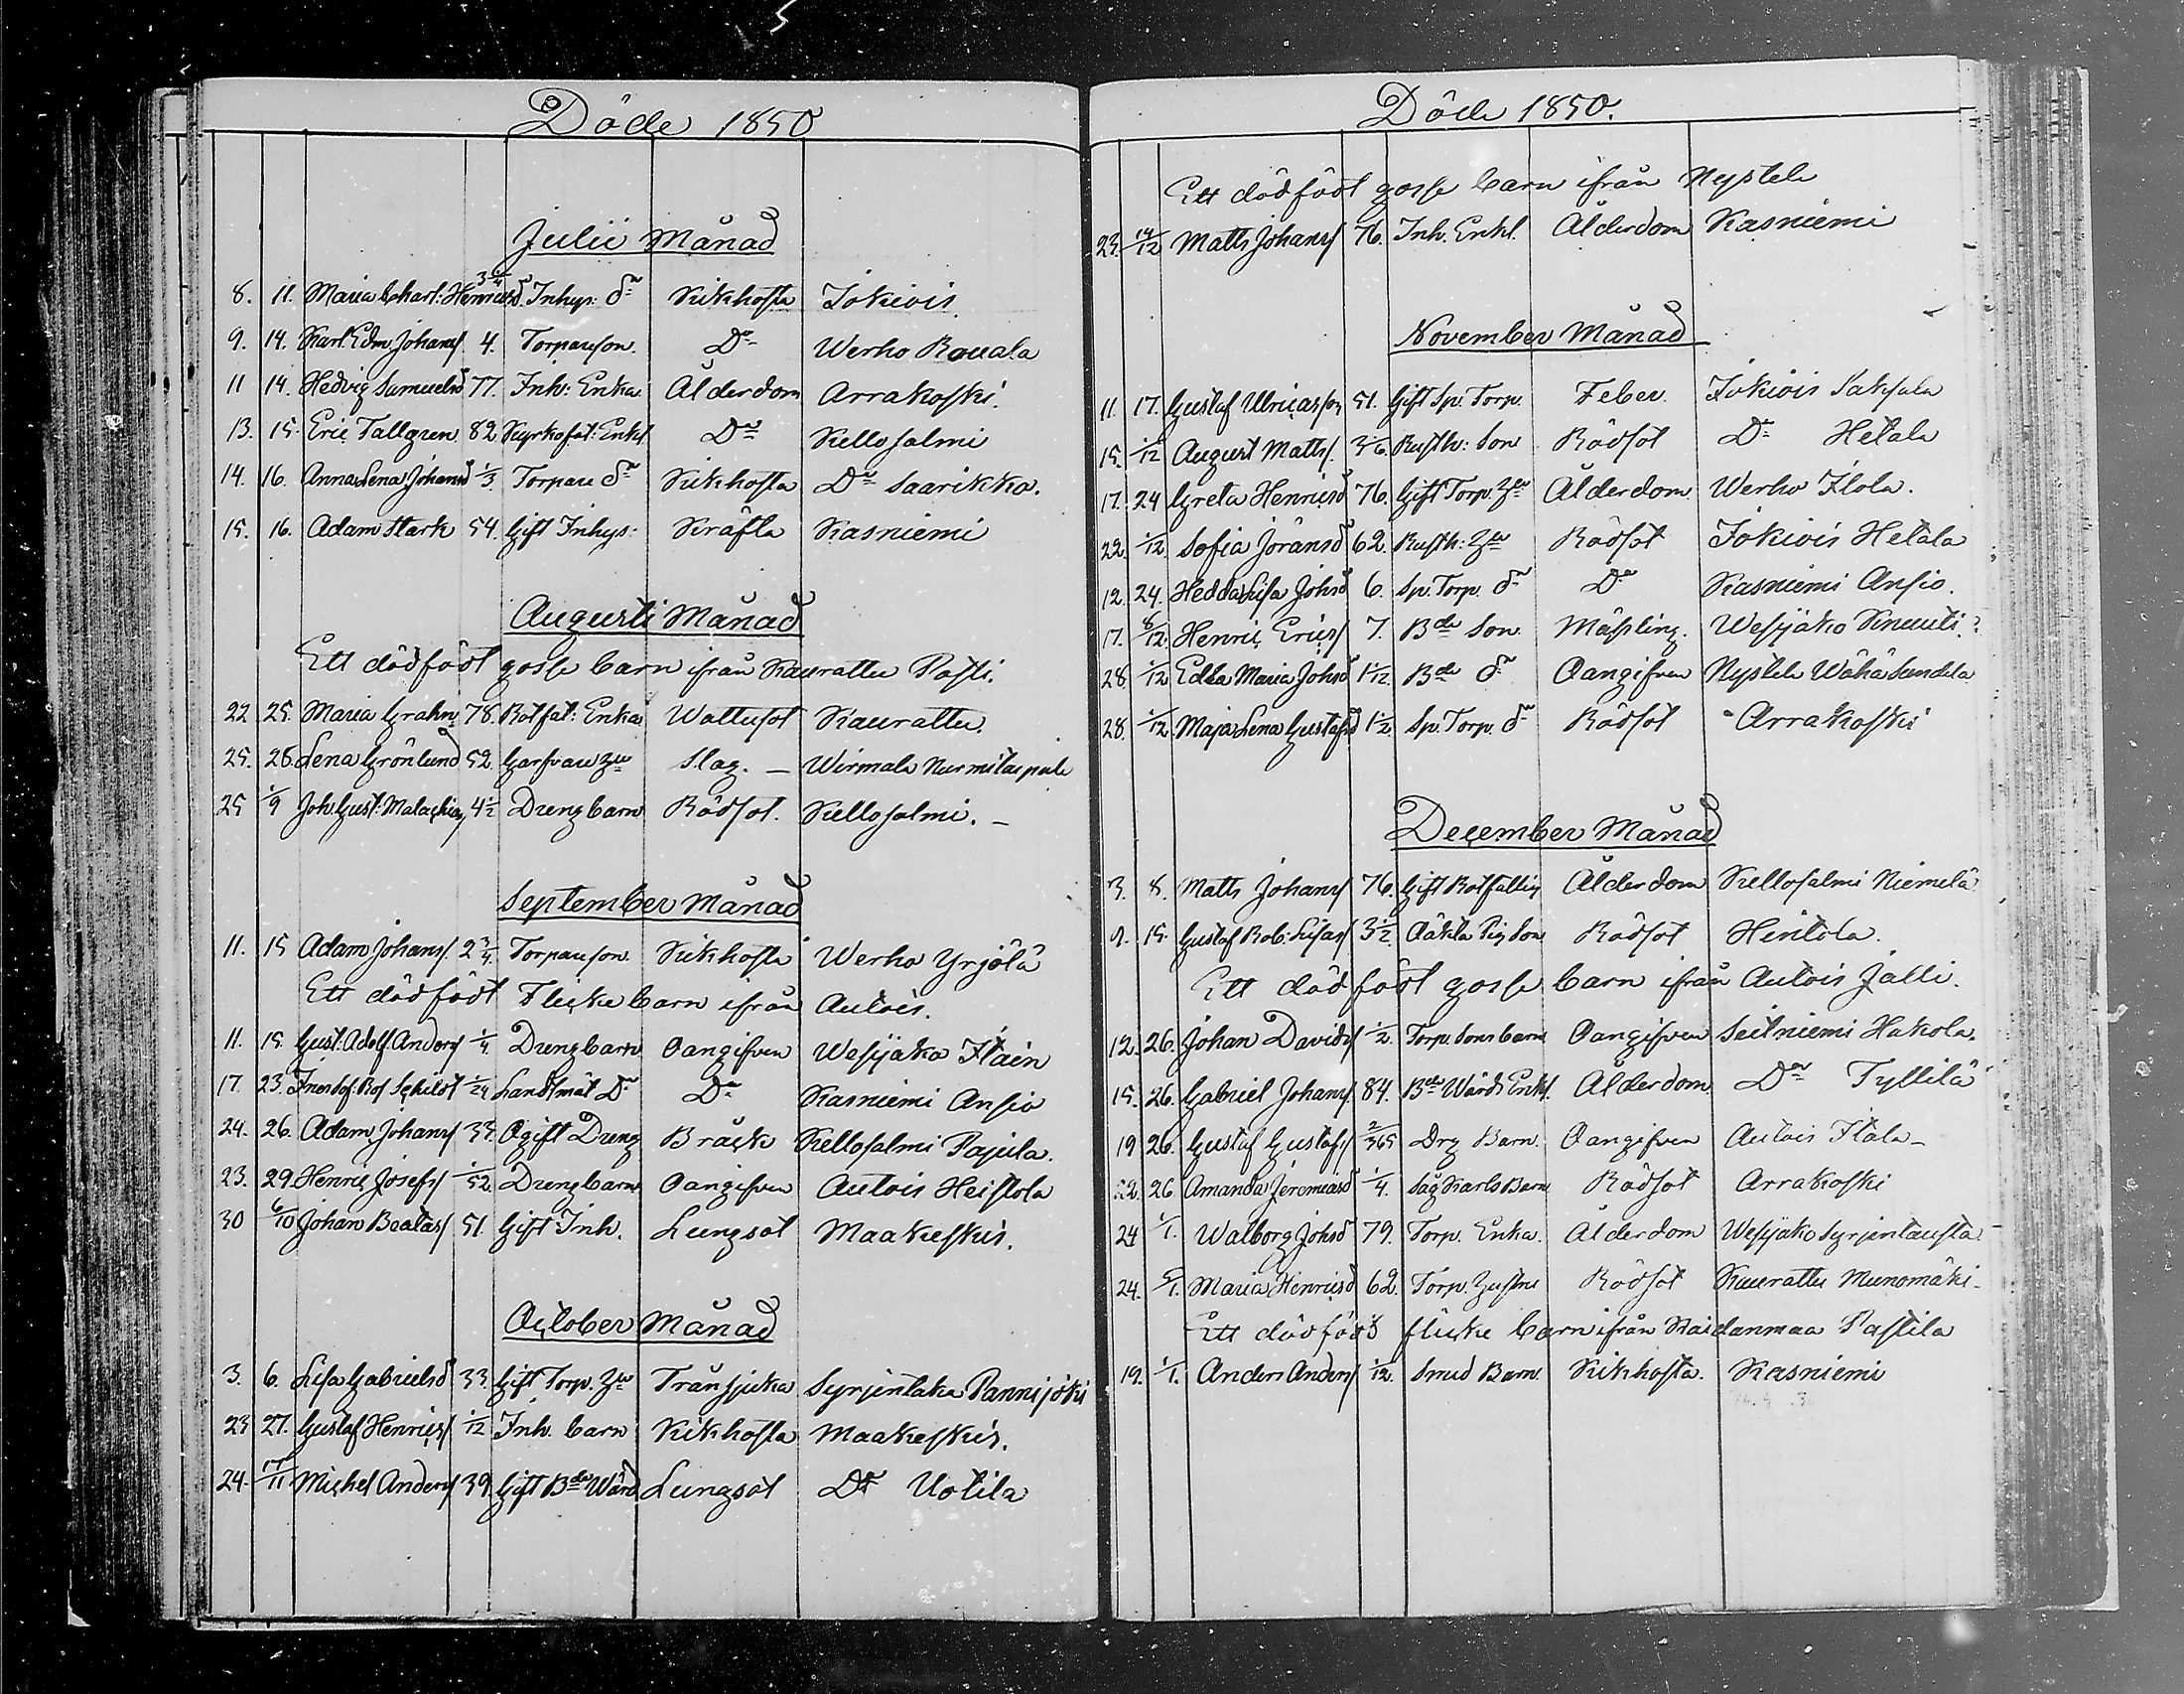 Döde 1850
Julii Månad
8. 11. Maria Charl: Henricsd. 3/4 Inhys: dr Kikhosta Jokiois.
9. 14. Karl Edm. Johans/ 4. Torpareson. Do Werho Rouala
11 14. Hedvig Samuelsd 77. Inh: Enka Ålderdom Arrakoski.
13. 15. Eric Tallgren 82 Kyrkofat: Enkl Do Kellosalmi
14. 16. Anna Lena Johansd 1/3. Torpare dr Kikhosta Do Saarikko.
15. 16. Adam Stark 54. Gift Inhys: Kräfta Kasniemi
Augusti Månad
Ett dödfödt gosse barn ifrån Kaurattu Pasti.
22 25. Maria Grahn 78. Rotfat: Enka Wattusot Kaurattu.
25. 28. Lena Grönlund 52. Garfvare Hu Slag. — Wirmala Nurmitaipale
25 1/9 Joh. Gust: Malachias/ 4 1/2 Drengbarn Rödsot. Kellosalmi. —
September Månad
11. 15 Adam Johans/. 2 3/4. Torpareson. Kikhosta Werho Yrjölä
Ett dödfödt Flicke barn ifrån Autois.
11. 15. Gust: Adolf Anders/ 1/4. Drengbarn Oangifven Wesijako Itäin
17. 23. Schildt 1/24 Landtmät. Dr Do Kasniemi Ansio
24. 26. Adam Johans/ 33. Ogift Dreng Bråck Kellosalmi Pajula.
23. 29. Henric Josefs/ 1/52. Drengbarn Oangifven Autois Heistola
30 6/10 Johan Beatas/ 51. Gift Inh. Lungsot Maakeskis.
October Månad
3. 6. Lisa Gabrielsd 33. Gift Torp. Hu Trånsjuka Syrjentaka Pannijoki
23 27. Gustaf Henrics/ 1/12 Inh. barn Kikhosta Maakeskis.
24. 17/11 Michel Anders/ 39. Gift Bde Wärd Lungsot Do Uotila
Döde 1850.
Ett dödfödt gosse barn ifrån Nystele
23. 14/12 Matts Johans/ 76. Inh. Enkl. Ålderdom Kasniemi
November Månad
11. 17. Gustaf Ulricasson 51. Gift Sp. Torp. Feber. Jokiois Saksala
15. 1/12 August Matts/. 36. Rusth: Son Rödsot Do Hetala
17. 24 Greta Henricsd 76. Gift Torp. Hu Ålderdom Werho Ilola.
22. 1/12 Sofia Göransd 62. Rusth: Hu Rödsot Jokiois Hetala
12. 24. Hedda Lisa Johsd 6. Sp. Torp. dr Do Kasniemi Ansio.
17. 8/12. Henric Erics/ 7. Bde Son Mässling. Wesijako Knuuti.
28. 1/12 Edla Maria Johsd 1 1/12. Bde dr Oangifven Nystele Wähä Sundila
28. 1/12 Maja Lena Gustafsd 1 1/2. Sp. Torp. dr Rödsot Arrakoski
December Månad
3. 8. Matts Johans/ 76. Gift Rotfattig Ålderdom Kellosalmi Niemelä
9. 15. Gustaf Rob: Lisas/ 3 1/2 Oäkta Pig Son Rödsot Hintola.
Ett dödfödt gosse barn ifrån Autois Jalli.
12. 26. Johan Davids/ 1/2 Torp. Sons barn Oangifven Seitniemi Hakola.
15. 26. Gabriel Johans/ 84. Bde Wärds Enkl. Ålderdom. Do Tyllilä
19 26. Gustaf Gustafs/ 2/365 Drg Barn. Oangifven Autois Itala —
22. 26 Amanda Jeremiasd 1/4. Såg Karls Barn Rödsot Arrakoski
24 1/1. Walborg Johsd 79. Torp. Enka. Ålderdom Wesijako Syrjentausta
24. 5/1. Maria Henricsd 62. Torp. Hustru Rödsot Kaurattu Munomäki
Ett dödfödt flicke barn ifrån Kaidanmaa Pastila
19. 1/1. Anders Anders/ 1/12. Smed Barn. Kikhosta. Kasniemi